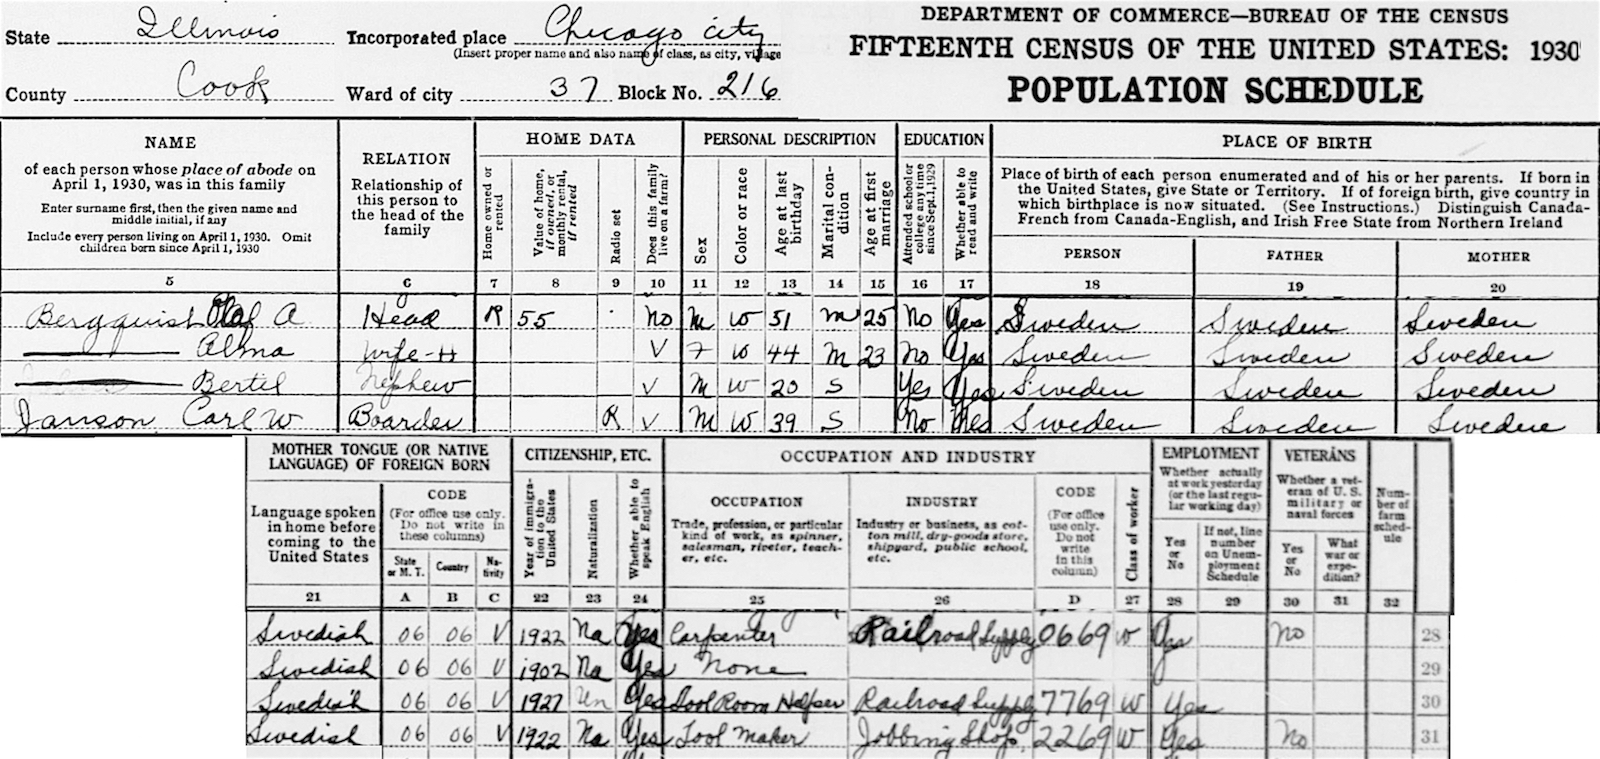 State Illinois
Incorporated place Chicago city
(Insert proper name and also name of class, as city, village
County Cook
Ward of city 37 Block No. 216
DEPARTMENT OF COMMERCE—BUREAU OF THE CENSUS
FIFTEENTH CENSUS OF THE UNITED STATES: 1930
POPULATION SCHEDULE
NAME
of each person whose place of abode on
April 1, 1930, was in this family
Enter surname first, then the given name and
middle initial, if any
Include every person living on April 1, 1930. Omit
children born since April 1, 1930
RELATION
Relationship of
this person to
the head of the
family
HOME DATA
Home owned or
rented
Value of home,
if owned, or
monthly rental,
if rented
Radio set
Does this family
live on a farm?
PERSONAL DESCRIPTION
Sex
Color or race
Age at last
birthday
Marital con-
dition
Age at first
marriage
EDUCATION
Attended school or
college any time
since Sept. 1, 1929
Whether able to
read and write
PLACE OF BIRTH
Place of birth of each person enumerated and of his or her parents. If born in
the United States, give State or Territory. If of foreign birth, give country in
which birthplace is now situated. (See Instructions.) Distinguish Canada-
French from Canada-English, and Irish Free State from Northern Ireland
PERSON FATHER MOTHER
5 6 7 8 9 10 11 12 13 14 15 16 17 18 19 20
Bergquist Olaf A Head R 55 No M W 51 M 25 No Yes Sweden Sweden Sweden
Alma Wife-H V F W 44 M 23 No Yes Sweden Sweden Sweden
Bertil Nephew V M W 20 S Yes Yes Sweden Sweden Sweden
Janson Carl W Boarder R V M W 39 S No Yes Sweden Sweden Sweden
MOTHER TONGUE (OR NATIVE
LANGUAGE) OF FOREIGN BORN
Language spoken
in home before
coming to the
United States
CODE
(For office use only.
Do not write in
these columns)
State
or M. T.
Country
Na-
tivity
CITIZENSHIP, ETC.
Year of immigra-
tion to the
United States
Naturalization
Whether able to
speak English
OCCUPATION AND INDUSTRY
OCCUPATION
Trade, profession, or particular
kind of work, as spinner,
salesman, riveter, teach-
er, etc.
INDUSTRY
Industry or business, as cot-
ton mill, dry-goods store,
shipyard, public school,
etc.
CODE
(For office
use only.
Do not
write
in this
column)
Class of worker
EMPLOYMENT
Whether actually
at work yesterday
(or the last regu-
lar working day)
Yes
or
No
If not, line
number
on Unem-
ployment
Schedule
VETERANS
Whether a vet-
eran of U. S.
military or
naval forces
Yes
or
No
What
war or
expe-
dition?
Num-
ber of
farm
sched-
ule
21 A B C 22 23 24 25 26 D 27 28 29 30 31 32
Swedish 06 06 V 1922 Na Yes Carpenter Railroad Supply 0669 W Yes No 28
Swedish 06 06 V 1902 Na Yes None 29
Swedish 06 06 V 1927 Un Yes Tool Room Helper Railroad Supply 7769 W Yes 30
Swedish 06 06 V 1922 Na Yes Tool Maker Jobbing Shop 2269 W Yes No 31